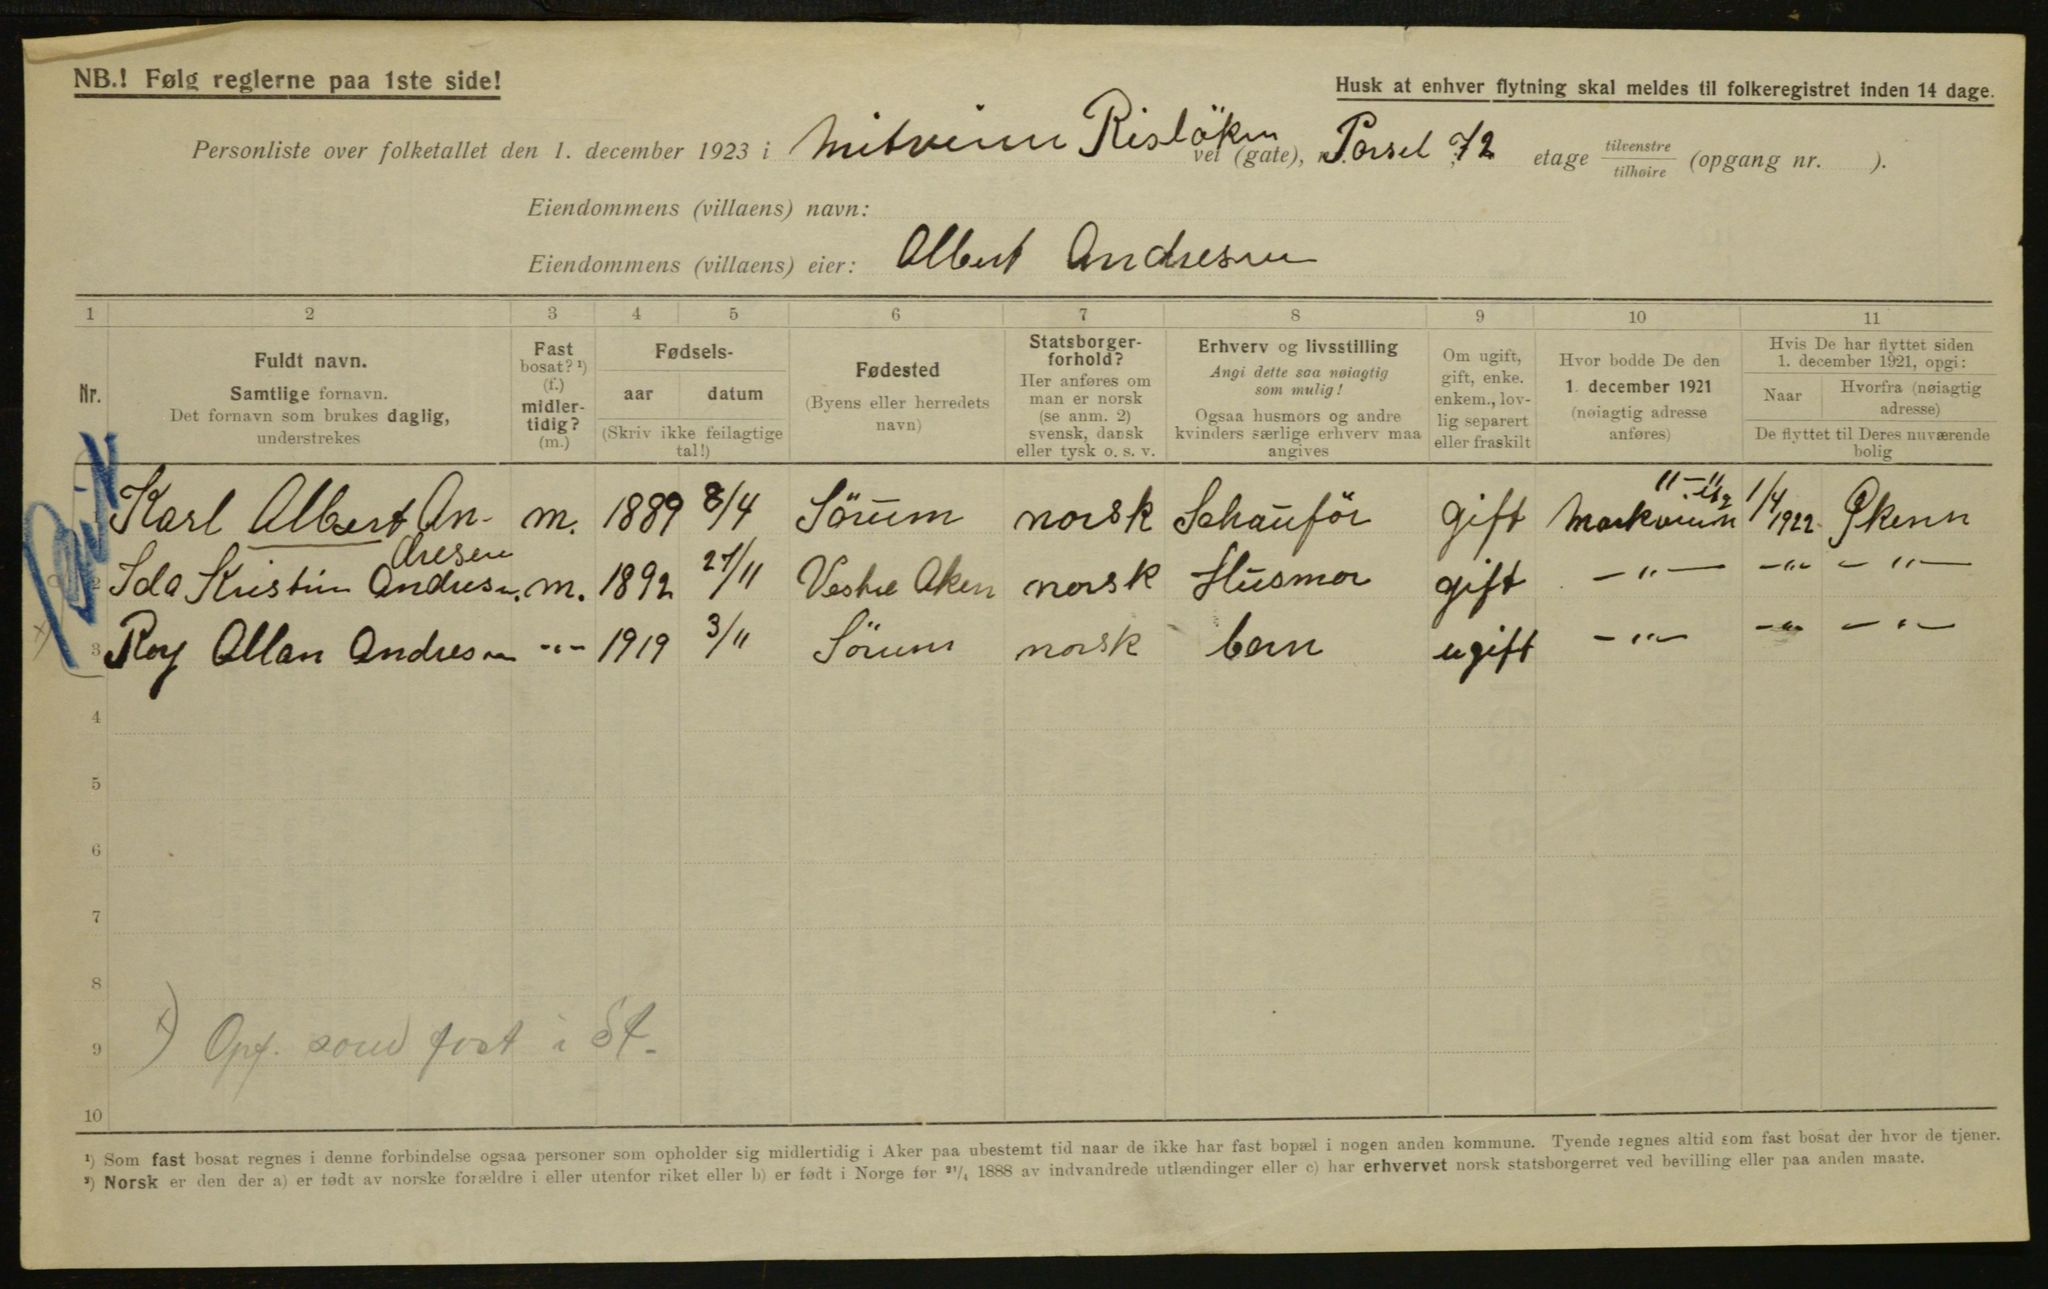 NB.! Følg reglerne paa 1ste side!
Husk at enhver flytning skal meldes til folkeregistret inden 14 dage.
Personliste over folketallet den 1. december 1923 i Risløken vei (gate), Parsel 72 etage tilvenstre tilhøire (opgang nr. ).
Eiendommens (villaens) navn:
Eiendommens (villaens) eier: Albert Andresen
1 2 3 4 5 6 7 8 9 10 11
Nr.
Fuldt navn.
Samtlige fornavn.
Det fornavn som brukes daglig,
understrekes
Fast
bosat? ¹)
(f.)
midler-
tidig?
(m.)
Fødsels-
aar datum
(Skriv ikke feilagtige
tal!)
Fødested
(Byens eller herredets
navn)
Statsborger-
forhold?
Her anføres om
man er norsk
(se anm. 2)
svensk, dansk
eller tysk o. s. v.
Erhverv og livsstilling
Angi dette saa nøiagtig
som mulig!
Ogsaa husmors og andre
kvinders særlige erhverv maa
angives
Om ugift,
gift, enke.
enkem., lov-
lig separert
eller fraskilt
Hvor bodde De den
1. december 1921
(nøiagtig adresse
anføres)
Hvis De har flyttet siden
1. december 1921, opgi:
Naar
Hvorfra (nøiagtig
adresse)
De flyttet til Deres nuværende
bolig
Karl Albert An- m. 1889 8/4 Sörum norsk Schauför gift 1/4 1922
dresen
2 Ida Kristin Andresen. m. 1892 27/11 Vestre Aker norsk Husmor gift -"- -"- -"-
3 Roy Allan Andresen -"- 1919 3/11 Sörum norsk barn ugift -"- -"- -"-
4
5
6
7
8
9
10
x) Opf. som fast i St.
¹) Som fast bosat regnes i denne forbindelse ogsaa personer som opholder sig midlertidig i Aker paa ubestemt tid naar de ikke har fast bopæl i nogen anden kommune. Tyende regnes altid som fast bosat der hvor de tjener.
²) Norsk er den der a) er født av norske forældre i eller utenfor riket eller b) er født i Norge før ²¹/₄ 1888 av indvandrede utlændinger eller c) har erhvervet norsk statsborgerret ved bevilling eller paa anden maate.